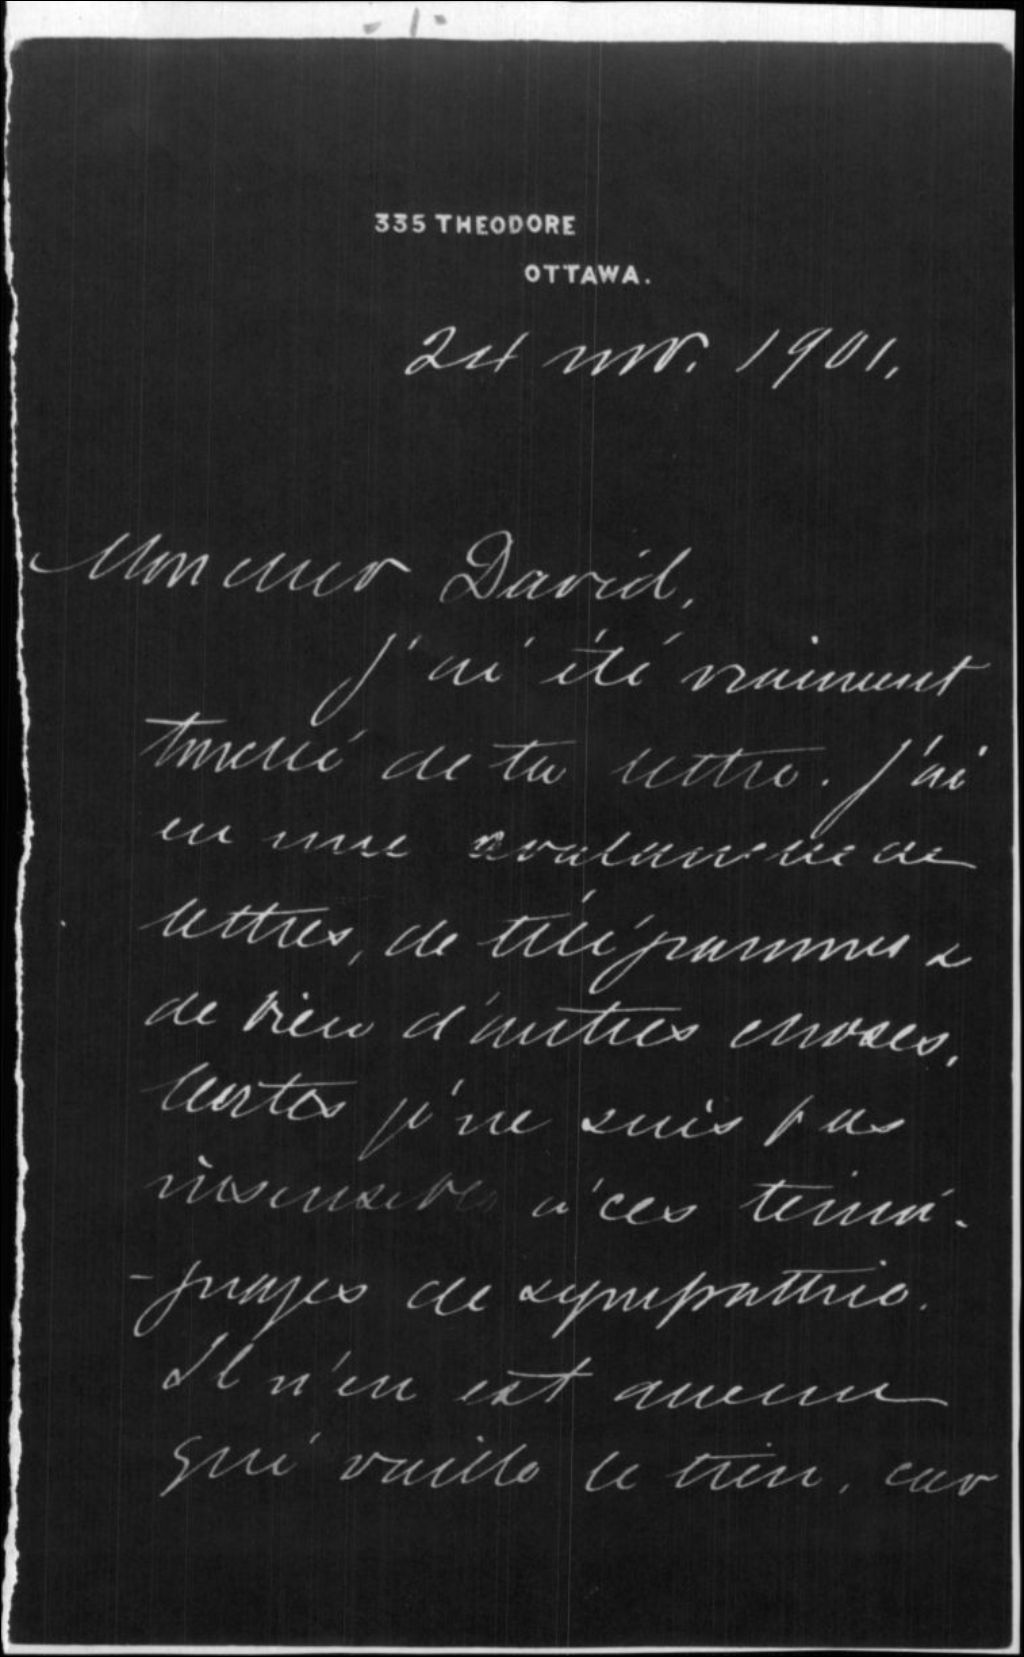 - 1 -
335 THEODORE
OTTAWA.
24 nov. 1901.
Mon cher David,
J'ai été vraiment
touché de ta lettre. J'ai
eu une avalanche de
lettres, de télégrammes &
de bien d'autres choses.
Certes je ne suis pas
insensible à ces témoi-
-gnages de sympathie.
Il n'en est aucun
qui vaille le tien, car